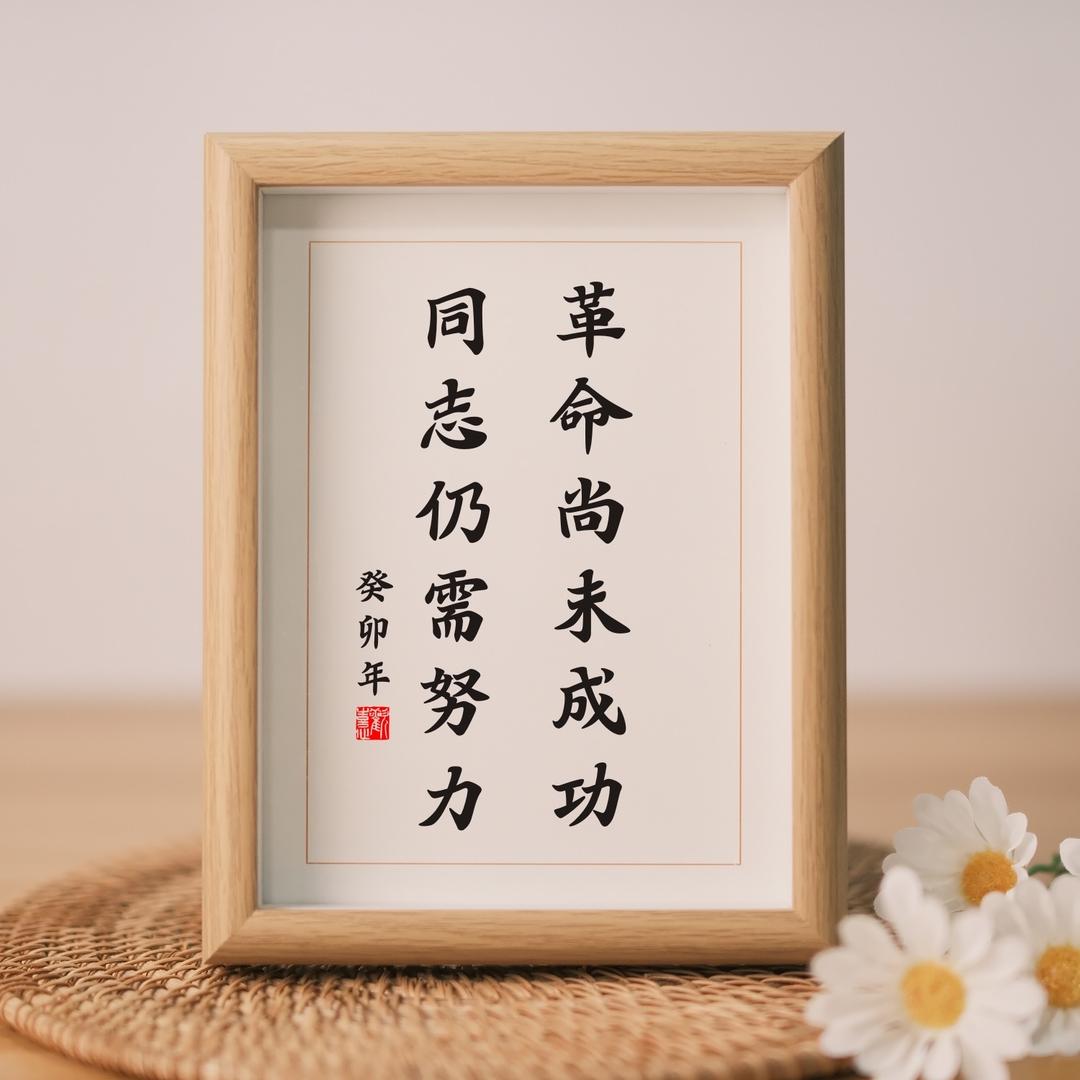 革命尚未成功
同志仍需努力
癸卯年